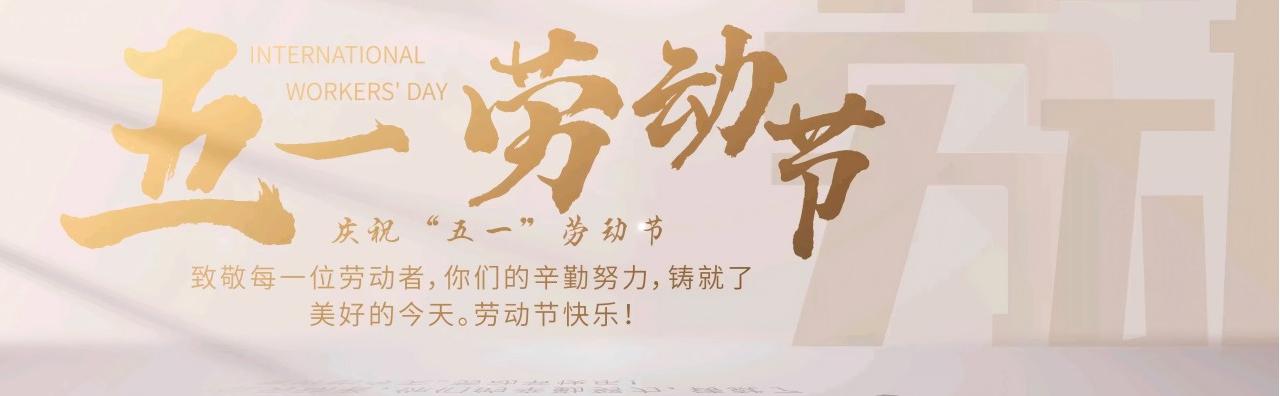 五一劳动节
INTERNATIONAL
WORKERS' DAY
庆祝“五一”劳动节
致敬每一位劳动者,你们的辛勤努力,铸就了
美好的今天。劳动节快乐!